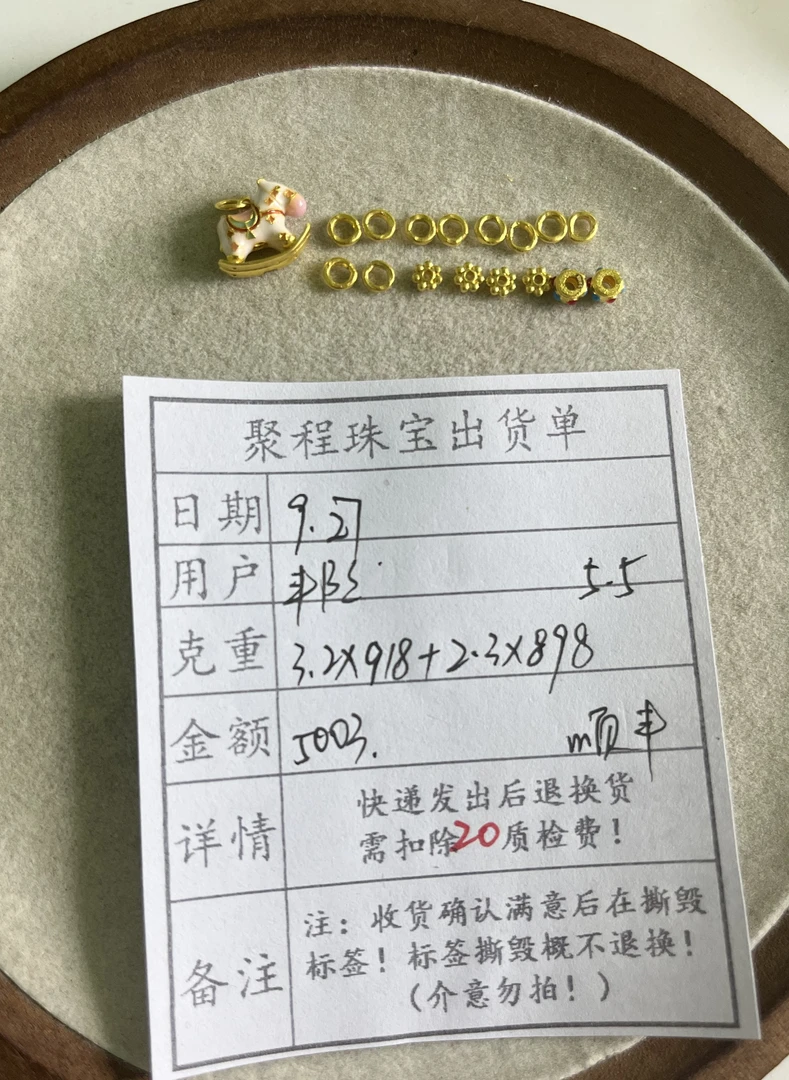 聚程珠宝出货单
日期 9.27
用户 5.5
克重 3.2×918+2.3×898
金额 5003. 顺丰
详情 快递发出后退换货
需扣除20质检费!
备注 注:收货确认满意后在撕毁
标签!标签撕毁概不退换!
(介意勿拍!)